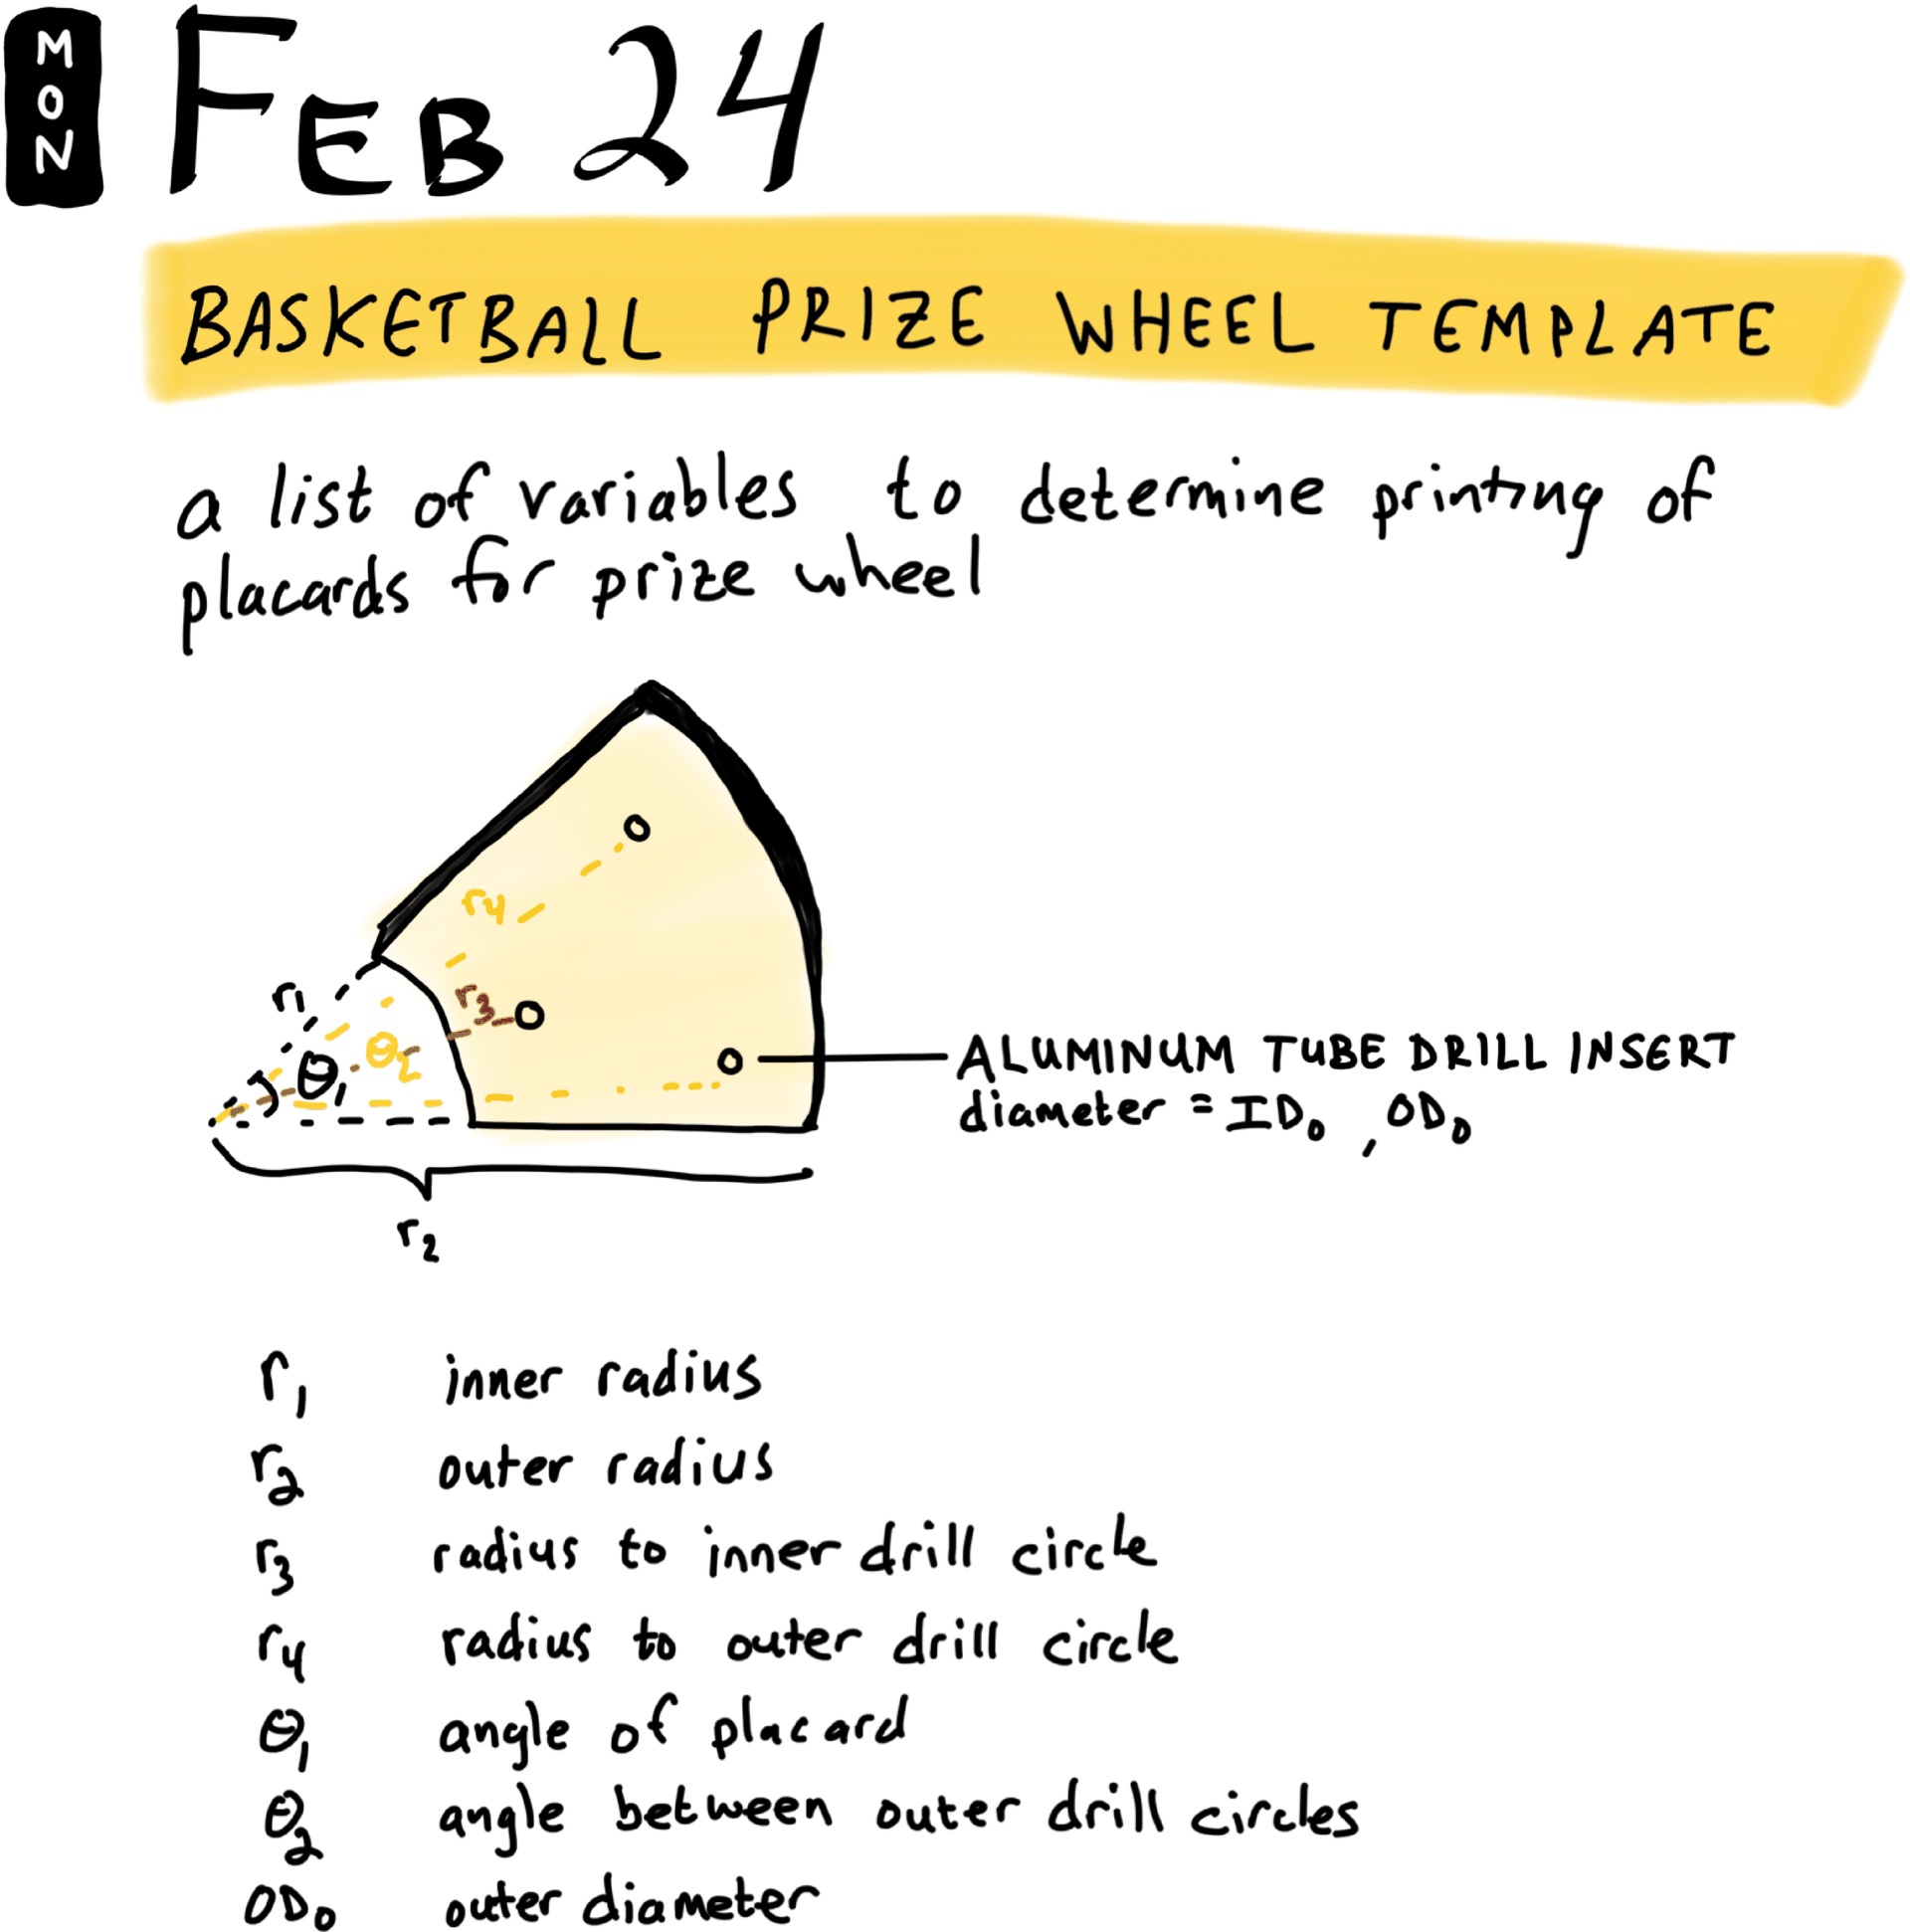 MON
FEB 24
BASKETBALL PRIZE WHEEL TEMPLATE
a list of variables to determine printing of
placards for prize wheel
r4
r3
r1
θ2
θ1
ALUMINUM TUBE DRILL INSERT
diameter = ID0, OD0
r2
r1 inner radius
r2 outer radius
r3 radius to inner drill circle
r4 radius to outer drill circle
θ1 angle of placard
θ2 angle between outer drill circles
OD0 outer diameter